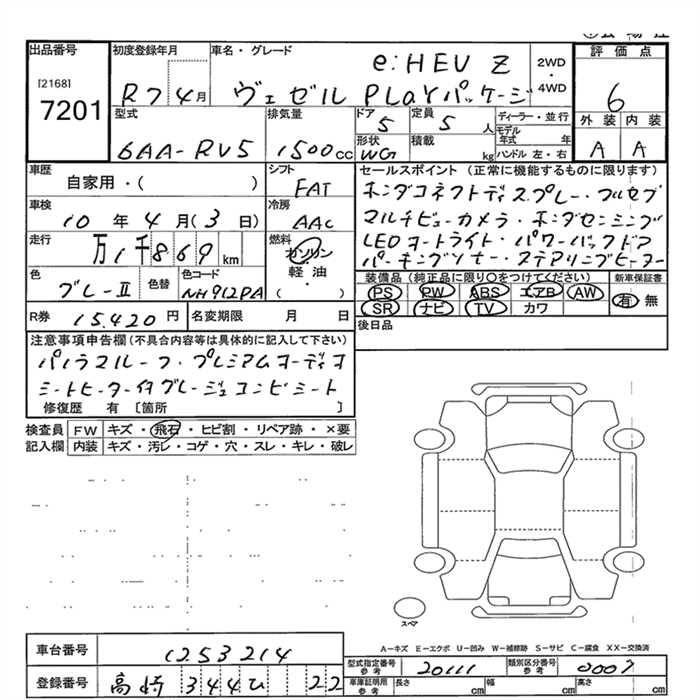 出品番号
[2168]
7201
初度登録年月
R7 4月
車名・グレード
e:HEV Z
ヴェゼル PLaYパッケージ
2WD
・
4WD
評価点
6
外装 内装
A A
型式
6AA-RV5
排気量
1500cc
ドア
5
定員
5人
形状
WG
積載
kg
ディーラー・並行
モデル年式 年
ハンドル 左・右
車歴
自家用・( )
シフト
FAT
車検
10年4月(3日)
冷房
AAC
走行
万1千869km
燃料
ガソリン
軽油
・
( )
色
グレーII
色替
色コード
NH912PA
R券
15,420円
名変期限 月 日
セールスポイント (正常に機能するものに限ります)
ホンダコネクトディスプレー・フルセグ
マルチビューカメラ・ホンダセンシング
LEDオートライト・パワーバックドア
パーキングソナー・ステアリングヒーター
装備品 (純正品に限り○をつけてください)
PS PW ABS エアB AW
SR ナビ TV カワ
新車保証書
有 無
後日品
注意事項申告欄(不具合内容等は具体的に記入して下さい)
パノラマルーフ・プレミアムオーディオ
シートヒーター付グレージュコンビシート
修復歴 有 〔箇所 〕
検査員 FW キズ・飛石・ヒビ割・リペア跡・×要
記入欄 内装 キズ・汚レ・コゲ・穴・スレ・キレ・破レ
スペア
A-キズ E-エクボ U-凹み W-補修跡 S-サビ C-腐食 XX-交換済
車台番号
1253214
登録番号
高崎 344ひ 22
型式指定番号
参考
20111
類別区分番号
参考
0007
車庫証明用
参考
長さ cm 幅 cm 高さ cm